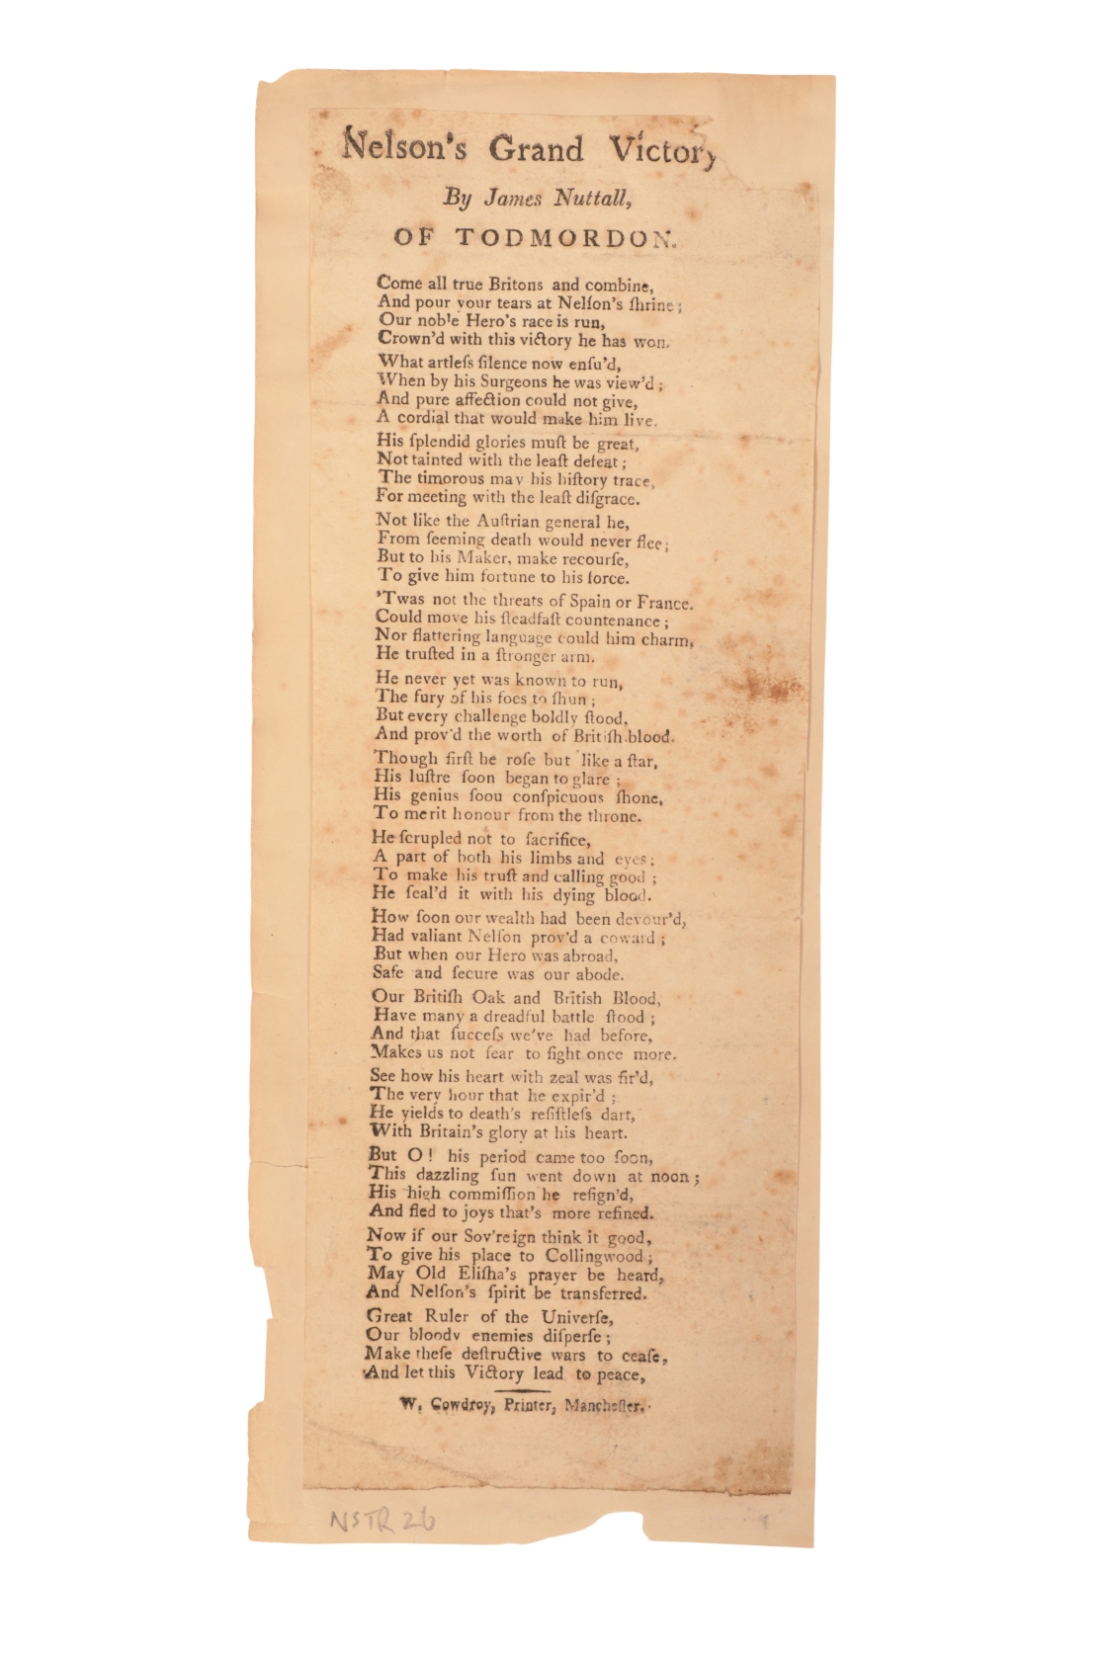 Nelson's Grand Victory
By James Nuttall,
OF TODMORDON.
Come all true Britons and combine,
And pour your tears at Nelſon's ſhrine;
Our noble Hero's race is run,
Crown'd with this victory he has won.
What artleſs ſilence now enſu'd,
When by his Surgeons he was view'd;
And pure affection could not give,
A cordial that would make him live.
His ſplendid glories muſt be great,
Not tainted with the leaſt defeat;
The timorous may his hiſtory trace,
For meeting with the leaſt diſgrace.
Not like the Auſtrian general he,
From ſeeming death would never flee;
But to his Maker, make recourſe,
To give him fortune to his force.
'Twas not the threats of Spain or France.
Could move his ſteadfaſt countenance;
Nor flattering language could him charm,
He truſted in a ſtronger arm.
He never yet was known to run,
The fury of his foes to ſhun;
But every challenge boldly ſtood,
And prov'd the worth of Britiſh blood.
Though firſt he roſe but like a ſtar,
His luſtre ſoon began to glare;
His genius ſoou conſpicuous ſhone,
To merit honour from the throne.
He ſcrupled not to ſacrifice,
A part of both his limbs and eyes;
To make his truſt and calling good;
He ſeal'd it with his dying blood.
How ſoon our wealth had been devour'd,
Had valiant Nelſon prov'd a coward;
But when our Hero was abroad,
Safe and ſecure was our abode.
Our Britiſh Oak and British Blood,
Have many a dreadful battle ſtood;
And that ſucceſs we've had before,
Makes us not fear to fight once more.
See how his heart with zeal was fir'd,
The very hour that he expir'd;
He yields to death's reſiſtleſs dart,
With Britain's glory at his heart.
But O! his period came too ſoon,
This dazzling ſun went down at noon;
His high commiſſion he reſign'd,
And fled to joys that's more refined.
Now if our Sov'reign think it good,
To give his place to Collingwood;
May Old Eliſha's prayer be heard,
And Nelſon's ſpirit be transferred.
Great Ruler of the Univerſe,
Our bloody enemies diſperſe;
Make theſe deſtructive wars to ceaſe,
And let this Victory lead to peace,
W. Cowdroy, Printer, Mancheſter.
NSTR 26